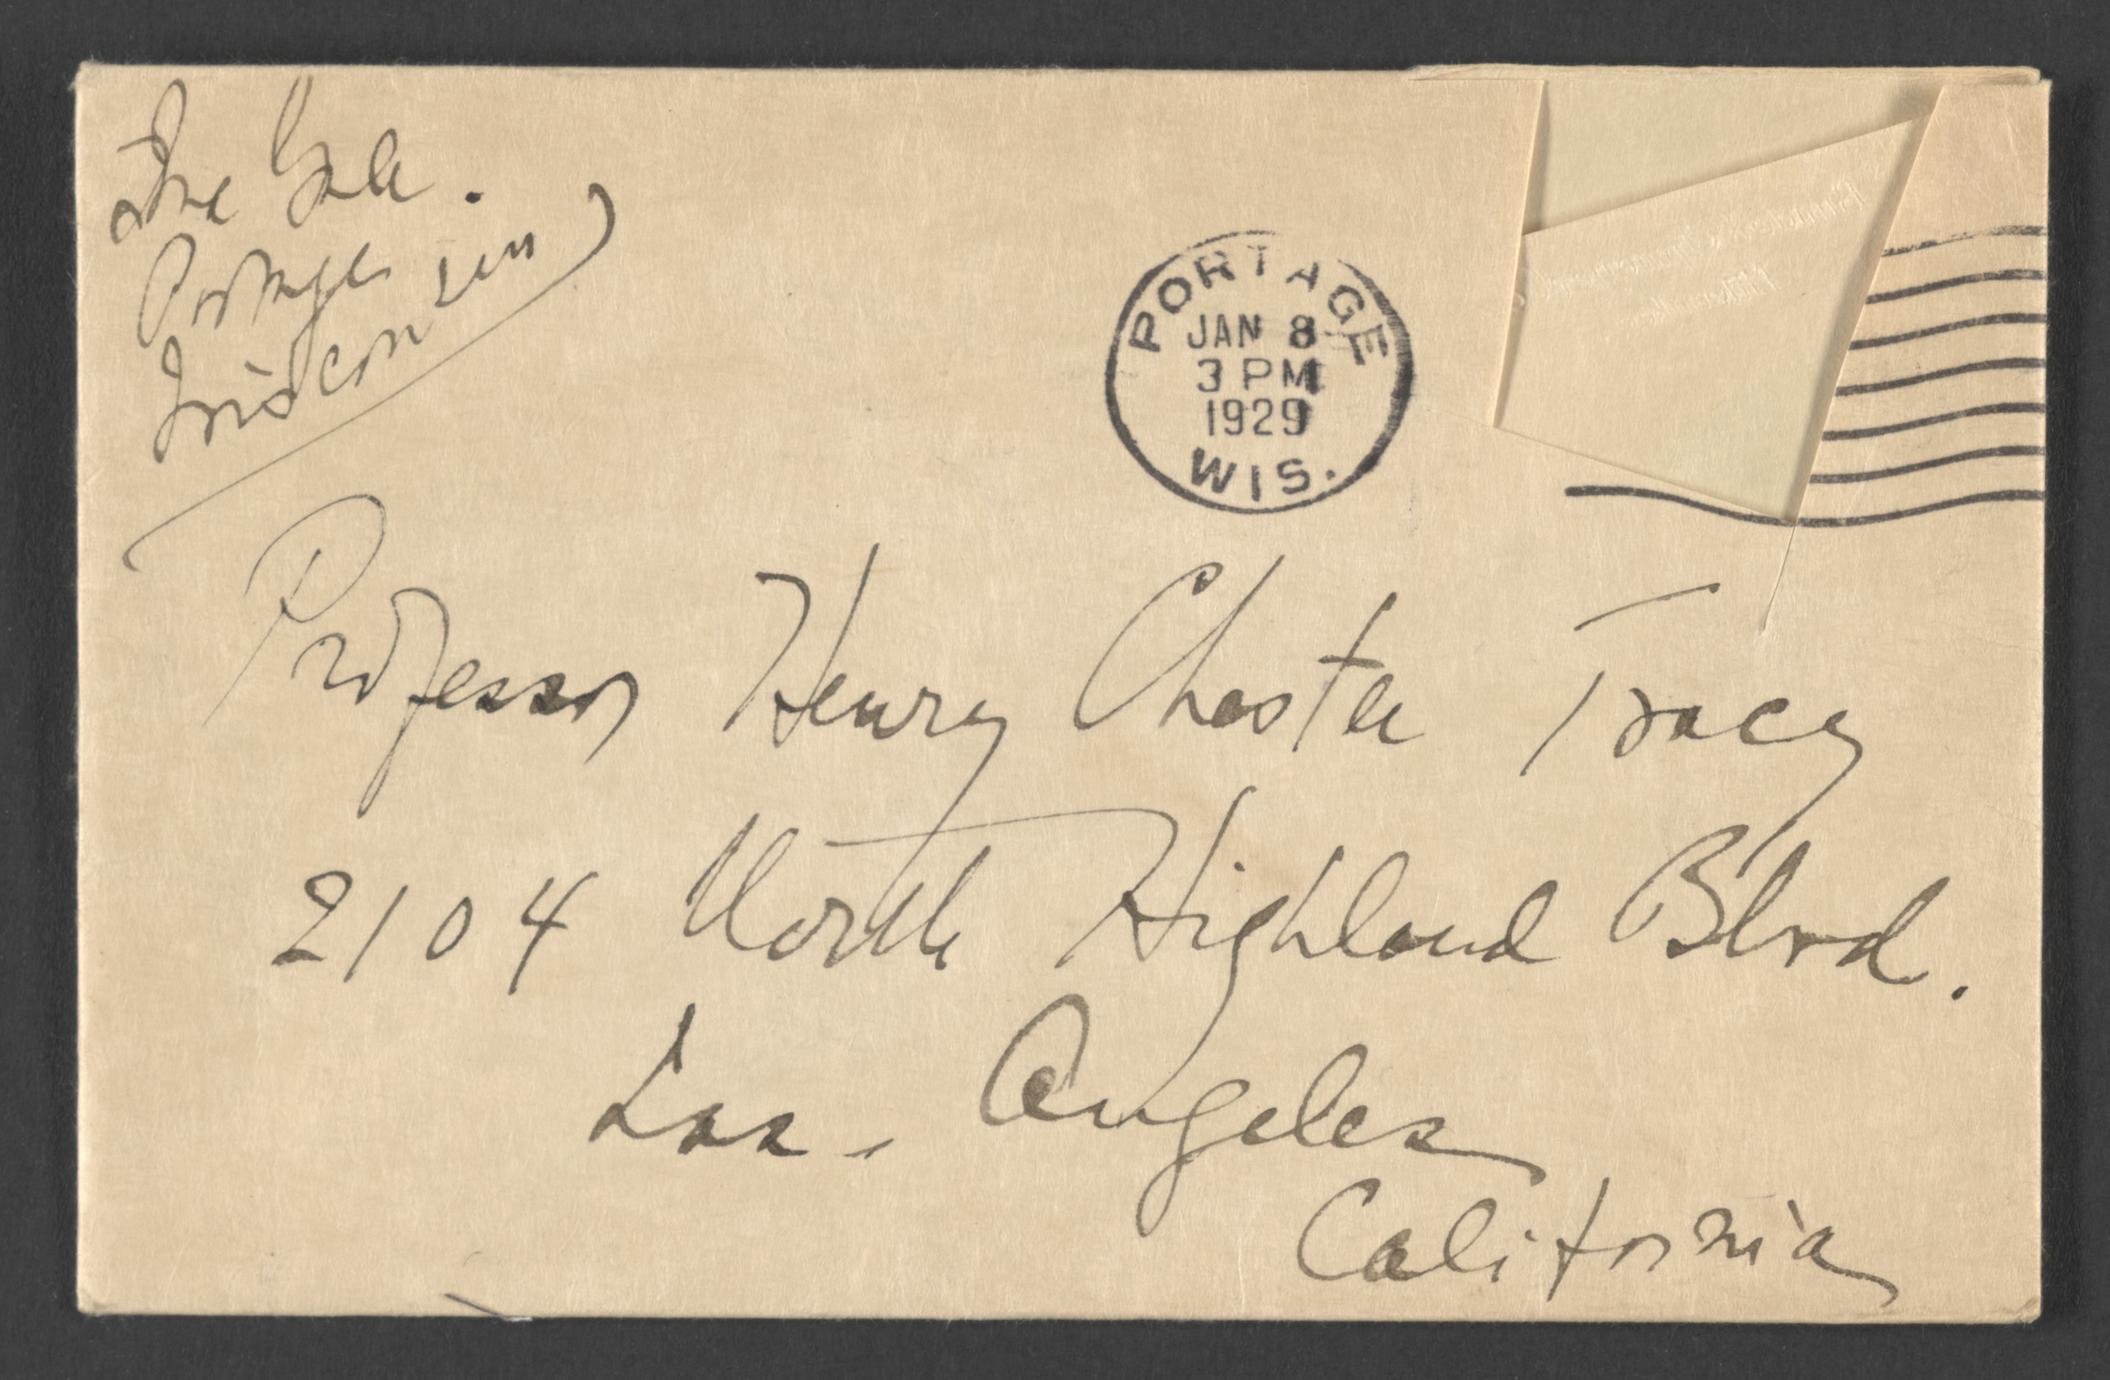 Zona Gale.
Portage
Wisconsin
PORTAGE
JAN 8
3 PM
1929
WIS.
Professor Henry Chester Tracy
2104 North Highland Blvd.
Los - Angeles
California